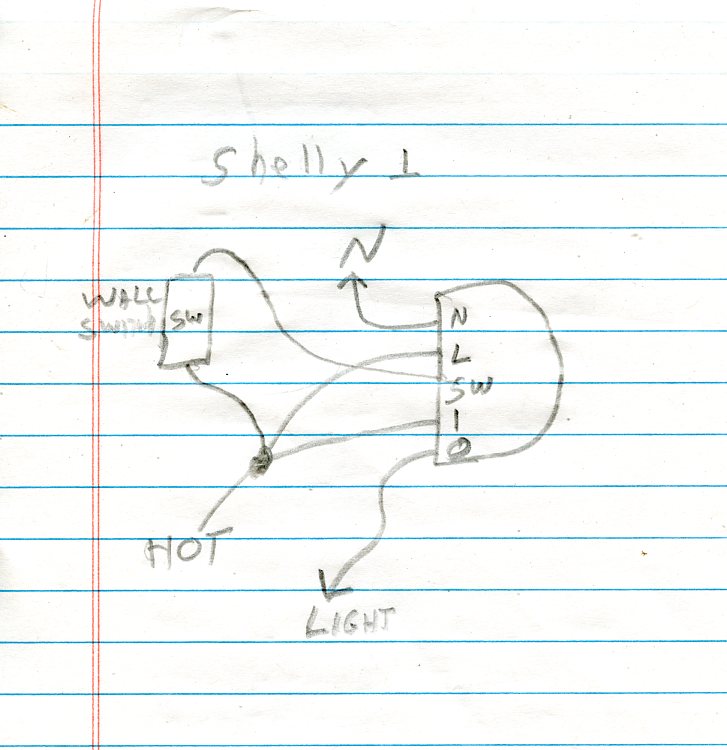 Shelly 1
N
WALL
SWITCH
SW
N
L
SW
1
O
HOT
LIGHT